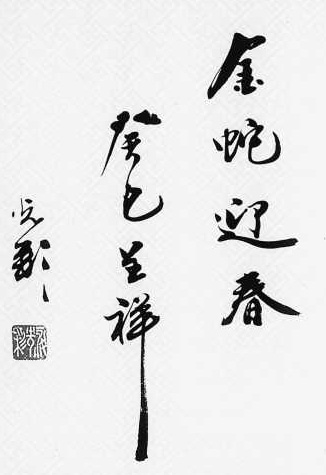 金蛇迎春
癸巳呈祥